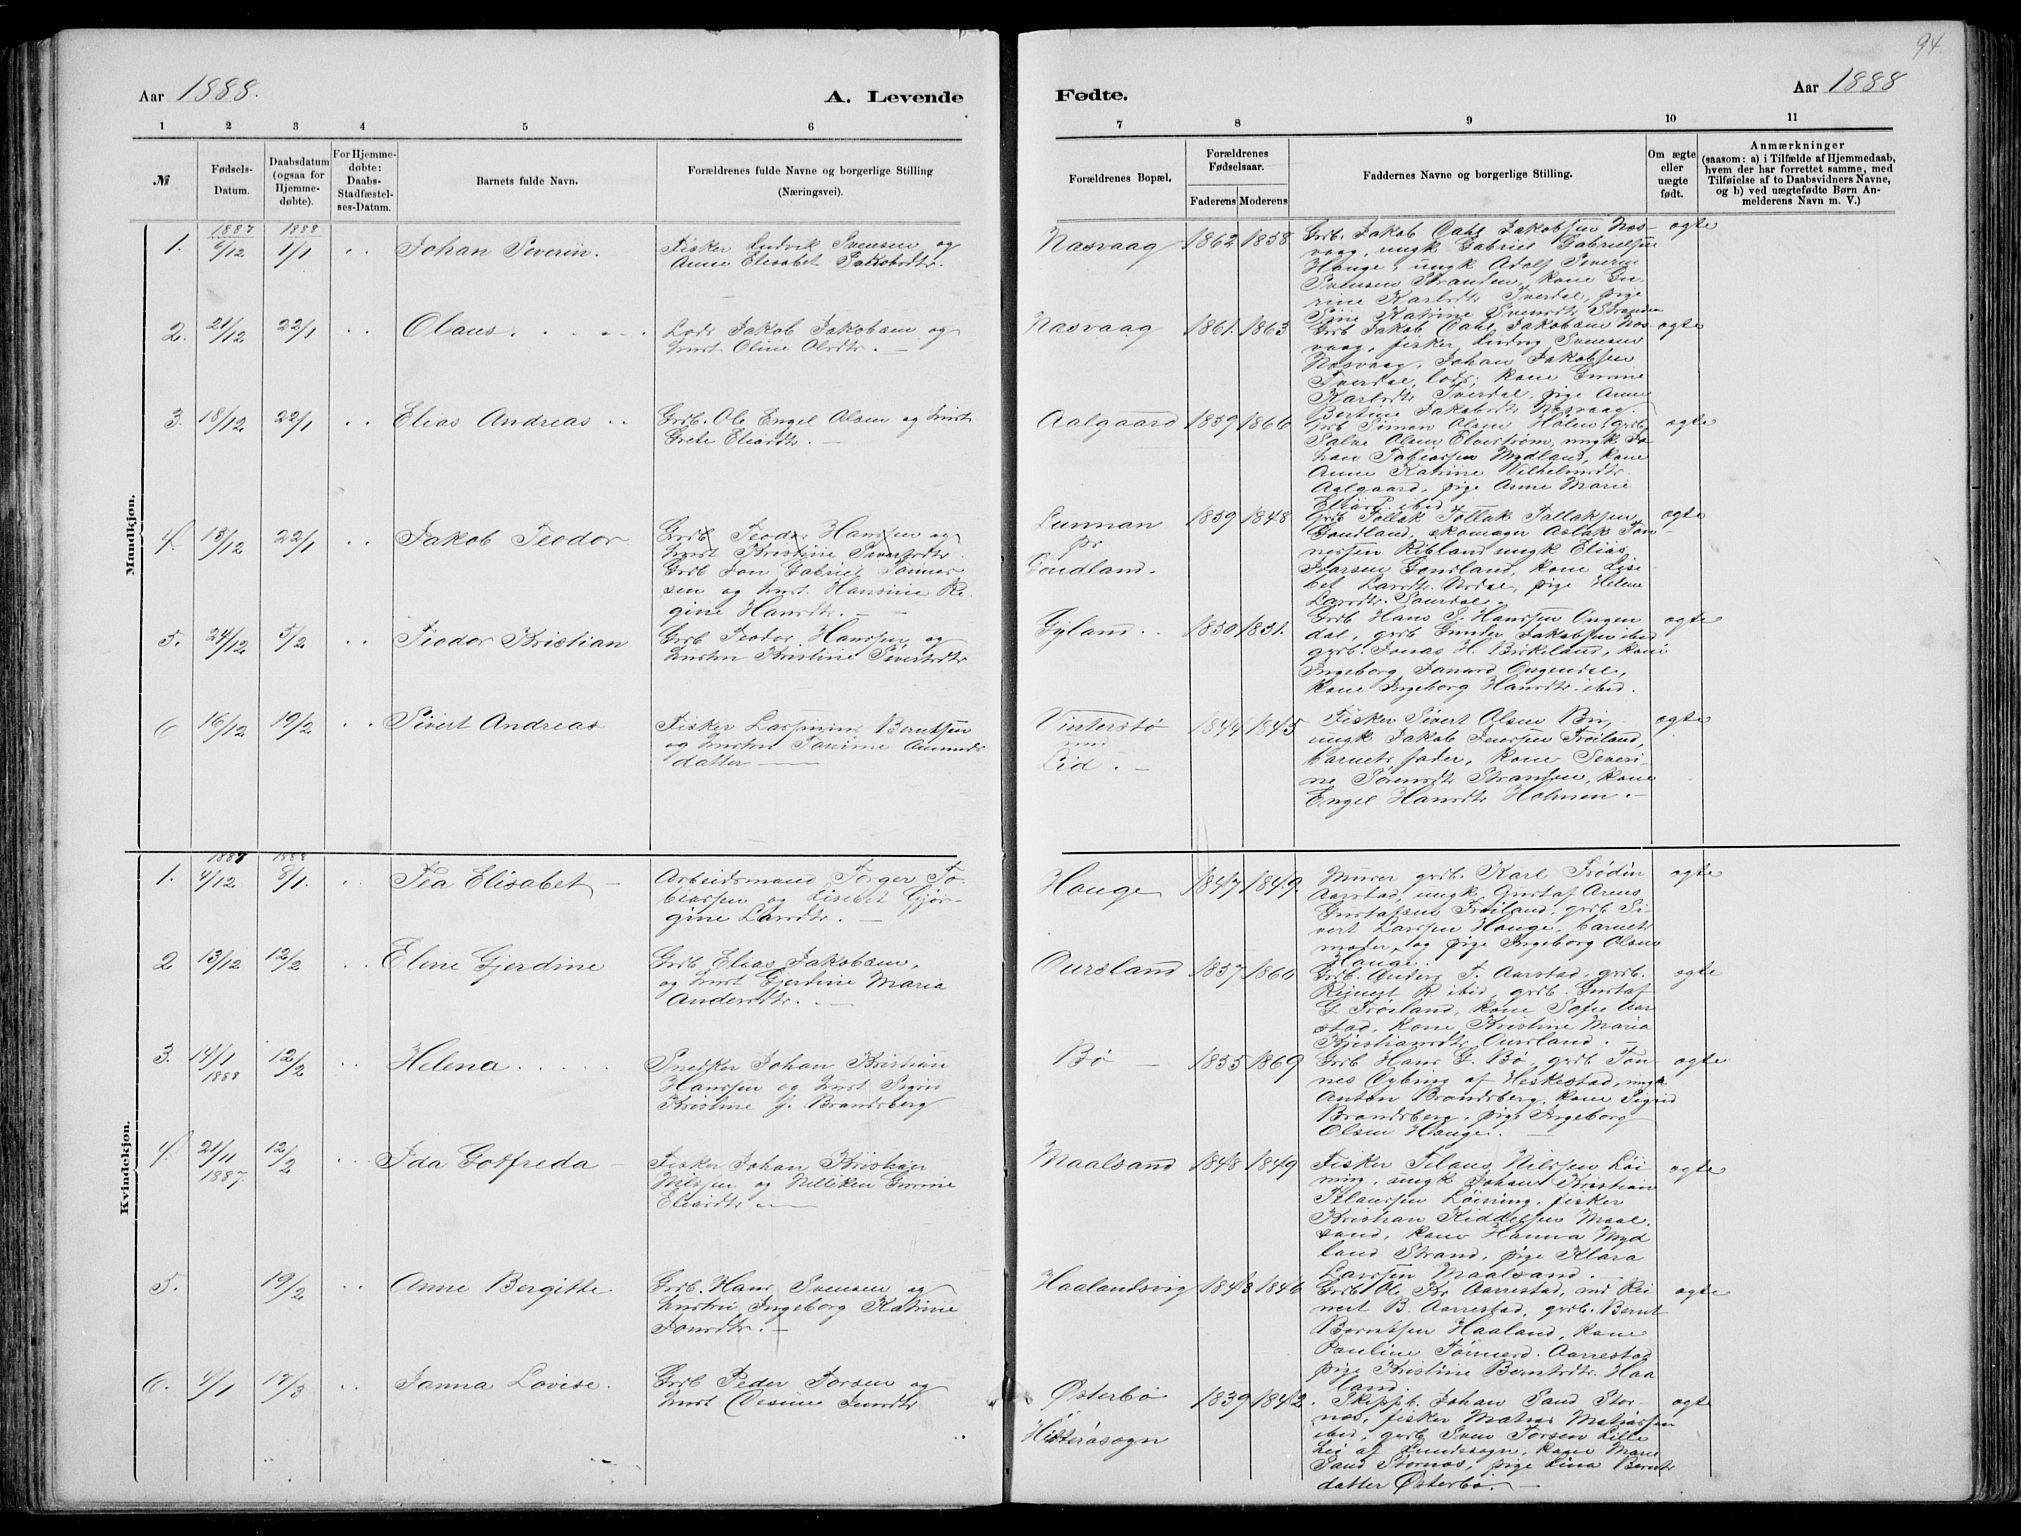 94.
Aar 1888.
A. Levende
Fødte.
Aar 1888
1 2 3 4 5 6
7 8 9 10 11
№
Fødsels-
Datum.
Daabsdatum
(ogsaa for
Hjemme-
døbte).
For Hjemme-
døbte:
Daabs-
Stadfæstel-
ses-Datum.
Barnets fulde Navn.
Forældrenes fulde Navne og borgerlige Stilling
(Næringsvei).
Forældrenes Bopæl.
Forældrenes
Fødselsaar.
Faderens Moderens
Faddernes Navne og borgerlige Stilling.
Om ægte
eller
uægte
født.
Anmærkninger
(saasom: a) i Tilfælde af Hjemmedaab,
hvem der har forrettet samme, med
Tilføielse af to Daabsvidners Navne,
og b) ved uægtefødte Børn An-
melderens Navn m. V.)
Mandkjøn.
1887 1888
1. 6/12 1/1 Johan Severin.
Fisker Ludvik Svensen og
Anne Elisabet Jakobsdtr.
Nasvaag 1862 1858
Grb. Jakob Dahl Jakobsen Nes-
vaag, ungk Gabriel Gabrielsen
Hauge, ungk Adolf Severin
Svensen Stranden, kone Gu-
rine Karlsdtr Tverdal, pige
Sine Katrine Svensdtr Stranden
ægte
2. 21/12 22/1 Olaus.
Lods Jakob Jakobsen og
Hust Oline Olsdtr.
Nasvaag 1861. 1863
Grb Jakob Dahl Jakobsen Nes-
vaag, fisker Ludvig Svensen
Nesvaag, Johan Jakobsen
Tverdal, lods, kone Gurine
Karlsdtr Tverdal, pige Anne
Bertine Jakobsdtr Nesvaag.
ægte
3. 18/12 22/1 Elias Andreas
Grb. Ole Engel Olsen og Hust
Grete Eliasdtr.
Aalgaard 1859 1866
Grb Simon Olsen Hølen, grb
Salve Olsen Elvestrøm, ungk Jo-
han Tobiassen Mydland, kone
Anne Katrine Vilhelmsdtr
Aalgaard, pige Anne Marie
Eliasd. ibid
ægte
4. 18/12 22/1 Jakob Teodor
Grb Teodor Hanssen og
Hust Kristine Sivertsdtr
Grb Jan Gabriel Tønnes
sen og Hust. Hansine Re-
gine Hansdtr.
Lunnan
pr
Goudland. 1859 1848
Grb Tollak Tollak Tollaksen
Goudland, skomager Aslak Tøn-
nessen Ribland ungk Elias
Ivarsen Goudland, kone Lise-
bet Larsdtr Urdal, pige Helene
Larsdtr. Saurdal.
ægte
5. 24/12 5/2 Teodor Kristian
Grb Teodor Hanssen og
Hustru Kristine Sivertsdtr
Gyland. 1850 1851.
Grb Hans S. Hanssen Ougen
dal, grb Gunder Jakobsen ibid
grb. Jonas H. Birkeland, kone
Ingeborg Jonasd Ougendal,
kone Ingeborg Hansdtr ibid.
ægte
6 16/12 19/2 Sivert Andreas
Fisker Berntsen
og Hustru Tomine Amunds
datter
Vinterstø
und
Lid. 1844 1845
Fisker Sivert Olsen Bø,
ungk Jakob Jenssen Frøiland,
barnets fader, kone Severi-
ne Sørensdtr Stranden, kone
Engel Hansdtr Holmen.
ægte
Kvindekjøn.
1887 1888
1. 4/12 8/1. Tea Elisabet
Arbeidsmand Torger To-
biassen og Lisebet Gjør-
gine Larsdtr.
Hauge 1847 1849.
Murer grb. Karl Frødin
Aarstad, ungk Gustaf Arens
Gustafsen Frøiland, grb. Si-
vert Larssen Hauge, barnets
moder, og pige Ingeborg Olsen
Hauge.
ægte
2 13/12 12/2 Elene Gjerdine
Grb Elias Jakobsen,
og Hust Gjertine Maria
Andersdtr.
Oursland 1857 1860
Grb. Anders T. Aarstad, grb.
Reinert R ibid, grb. Gustaf
G Frøiland, kone Sofie Aar-
stad, kone Kristine Maria
Kristiansdtr Oursland.
ægte
3. 14/1 1888 12/2 Helena
Snedker Johan Kristian
Hanssen og Hust Sigrid
Kristine G. Brandsberg
Bø 1855 1869
Grb Hans G. Bø, grb. Tøn-
nes Nybing af Heskestad, ungk
Anton Brandsberg, kone Sigrid
Brandsberg, pige Ingeborg
Olsen Hauge.
ægte
4. 21/11 1887. 12/2 Ida Gotfreda
Fisker Johan Kristian
Nilssen og Nilliken Gurine
Eliasdtr
Maalsand 1848 1849
Fisker Tilaus Nilssen Løi
ning, ungk Johan Kristian
Tilaussen Løining, fisker
Kristian Kiddelsen Maal-
sand, kone Hanna Myd
land Strand, pige Klara
Larssen Maalsand.
ægte
5. 19/2 Anne Bergitte
Grb. Hans Svensen og
Hustru Ingeborg Katrine
Jonsdtr.
Haalandsvig 1843 1846
Grb Ole Kr Aarrestad, ind Rei
nert B. Aarrestad, grb. Bernt
Berntsen Haaland, kone
Pauline Tønnesd. Aarrestad
pige Kristine Berntsdtr Haa
land.
ægte
6. 4/1 17/3 Janna Lovise.
Grb Peder Torsen og
Hust Jensdtr
Østerbø
Hitterøsogn 1839 1842
Skipp b. Johan Sand Stor-
nes, fisker Mathias Mathiassen
ibid, grb Sven Torsen Lille
Lid af Lundesogn, kone Marie
Sand Stornes, pige Lina Bernts
datter Østerbø.
ægte